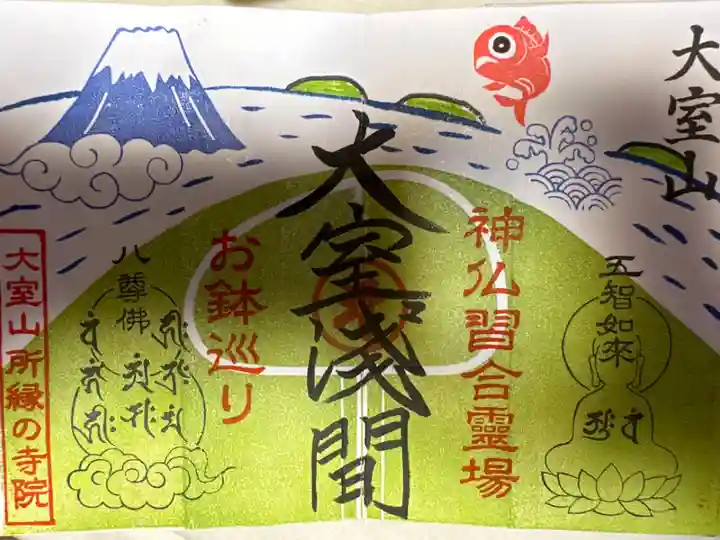 大室山
五智如来
神仏習合靈場
大室浅間
お鉢巡り
八尊佛
大室山所縁の寺院